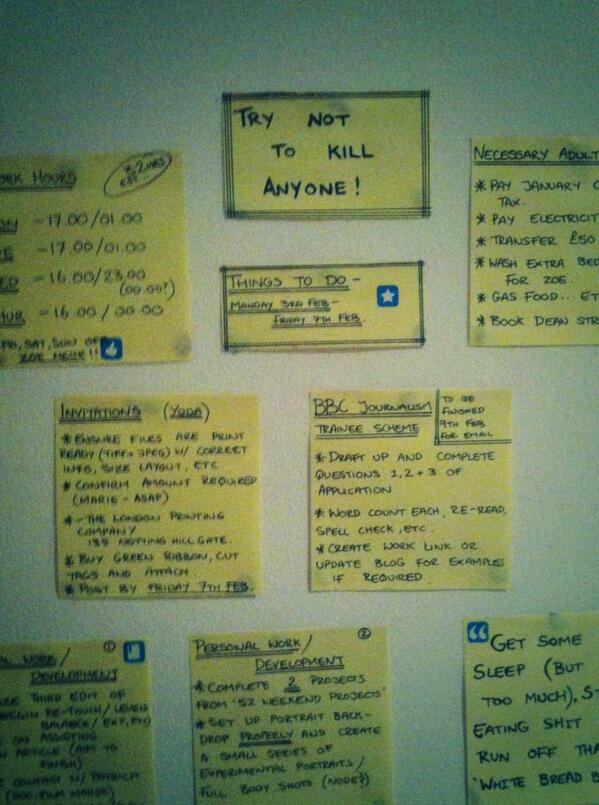 TRY NOT
TO KILL
ANYONE!
HOURS
= 17.00/01.00
= 17.00/01.00
= 16.00/23.00
(00.00?)
= 16.00/00.00
FRI, SAT, SUN OFF
ZOE HERE!!
NECESSARY ADULT
* PAY JANUARY C
TAX.
* PAY ELECTRICIT
* TRANSFER £50
* WASH EXTRA BED
FOR ZOE.
* GAS FOOD... ET
* BOOK DEAN STR
THINGS TO DO -
MONDAY 3RD FEB -
FRIDAY 7TH FEB.
INVITATIONS (YODA)
* ENSURE FILES ARE PRINT
READY (TIFF + JPEG) W/ CORRECT
INFO, SIZE LAYOUT, ETC
* CONFIRM AMOUNT REQUIRED
(MARIE - ASAP)
* - THE LONDON PRINTING
COMPANY
NOTTING HILL GATE.
* BUY GREEN RIBBON, CUT
TAGS AND ATTACH.
* POST BY FRIDAY 7TH FEB.
BBC JOURNALISM
TRAINEE SCHEME
TO BE
FINISHED
9TH FEB
FOR EMAIL
* DRAFT UP AND COMPLETE
QUESTIONS 1, 2 + 3 OF
APPLICATION
* WORD COUNT EACH, RE-READ,
SPELL CHECK, ETC.
* CREATE WORK LINK OR
UPDATE BLOG FOR EXAMPLES
IF REQUIRED
①
AL WORK/
DEVELOPMENT
THIRD EDIT OF
BEGIN RE-TOUCH/LEVELS
BALANCE/EXP, ETC)
ON ASSISTING
ARTICLE (AIM TO
FINISH)
CONTACT W/ PATRICK
(DOC-FILM MAKER)
②
PERSONAL WORK/
DEVELOPMENT
* COMPLETE 2 PROJECTS
FROM '52 WEEKEND PROJECTS'
* SET UP PORTRAIT BACK-
DROP PROPERLY AND CREATE
A SMALL SERIES OF
EXPERIMENTAL PORTRAITS/
FULL BODY SHOTS (NUDE?)
GET SOME
SLEEP (BUT
TOO MUCH), S
EATING SHIT
RUN OFF THA
'WHITE BREAD B